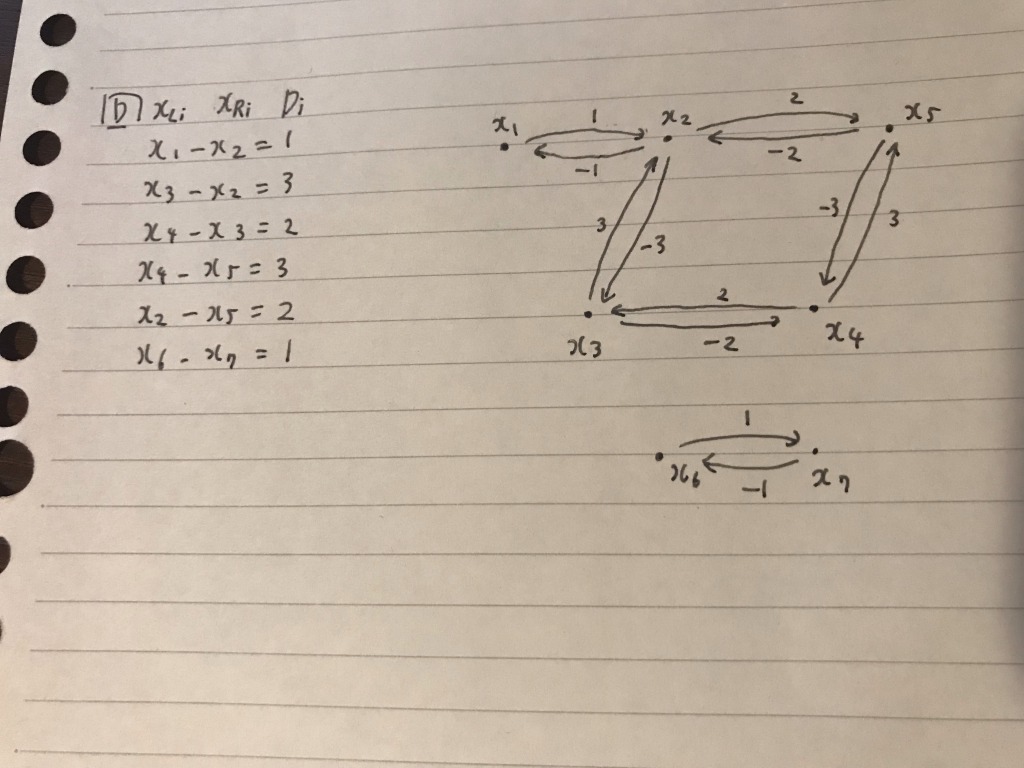 D x_Li x_Ri D_i
x_1 - x_2 = 1
x_3 - x_2 = 3
x_4 - x_3 = 2
x_4 - x_5 = 3
x_2 - x_5 = 2
x_6 - x_7 = 1
x_1 1 x_2 2 x_5
-1 -2
3 -3 -3 3
2
x_3 -2 x_4
1
x_6 -1 x_7